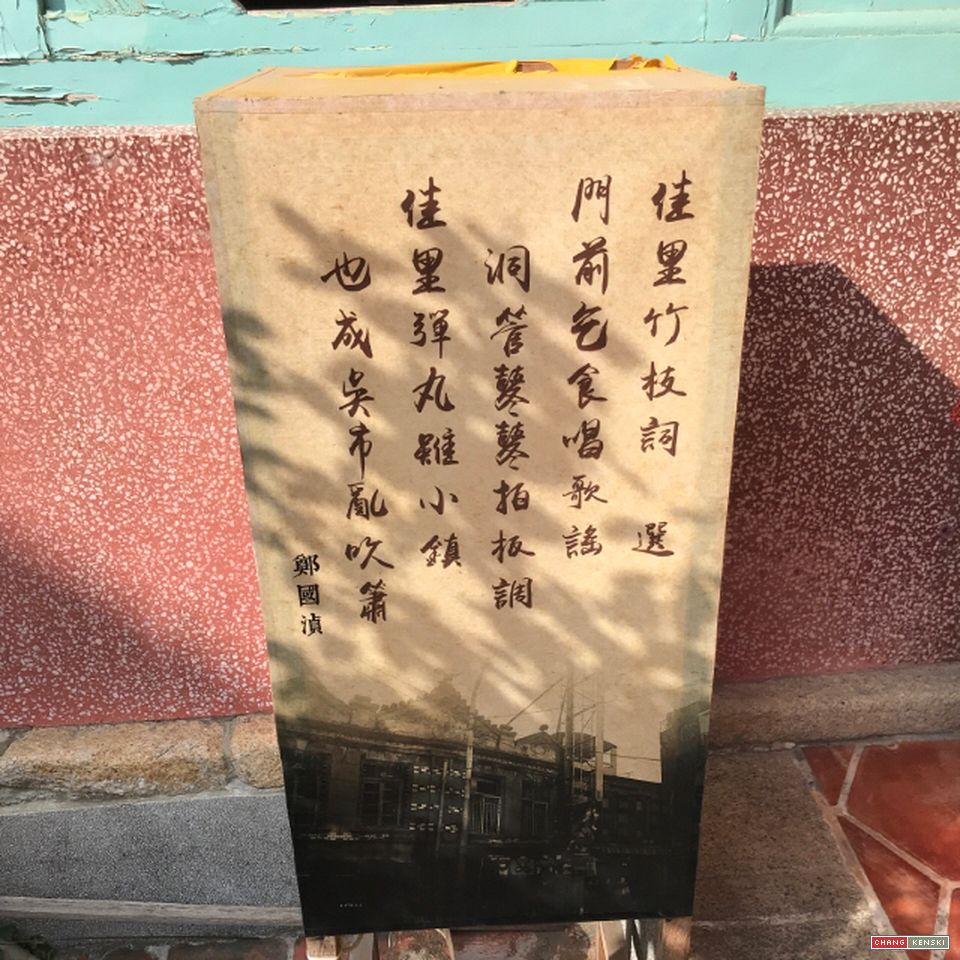 佳里竹枝詞 選
門前乞食唱歌謠
洞管琴琴拍板調
佳里彈丸雖小鎮
也成吳市亂吹簫
鄭國湞
CHANG KENSKI